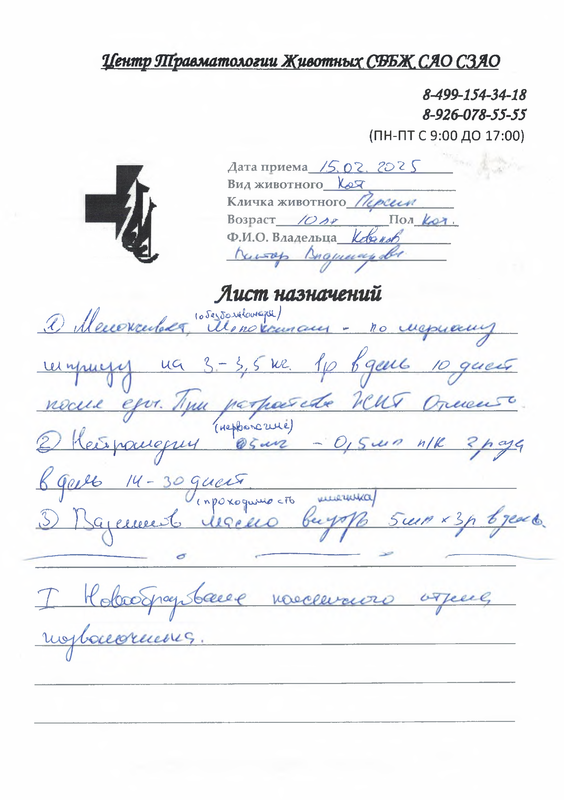 Центр Травматологии Животных СББЖ САО СЗАО
8-499-154-34-18
8-926-078-55-55
(ПН-ПТ С 9:00 ДО 17:00)
Дата приема 15.02.2025
Вид животного Кот
Кличка животного
Возраст 10 лет Пол Кот.
Ф.И.О. Владельца
Виктор Владимирович
Лист назначений
(обезболивающее)
1) Мелоксивет, - по мерному
шприцу на 3-3,5 кг. 1р в день 10 дней
после еды. При растройстве ЖКТ Отменить.
(нервология)
2) Нейромидин 05мг - 0,5мл п/к 2 раза
в день 14-30 дней.
(проходимость кишечника)
3) Вазелиновое масло внутрь 5мл х 3р в день.
I Новообразование поясничного отдела
позвоночника.